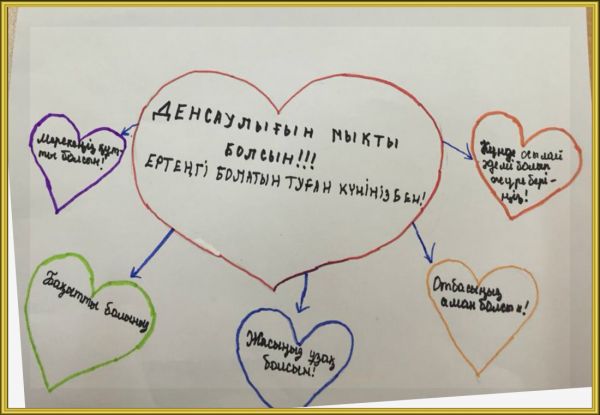 ДЕНСАУЛЫҒЫН МЫҚТЫ
БОЛСЫН!!!
ЕРТЕҢГІ БОЛАТЫН ТУҒАН КҮНІҢІЗБЕН!
Мерекеңіз құт-
ты болсын!
Күнде осылай
әдемі болып
жүре бері-
ңіз!
Бақытты болыңыз
Жасыңыз ұзақ
болсын!
Отбасыңыз
аман болсын!